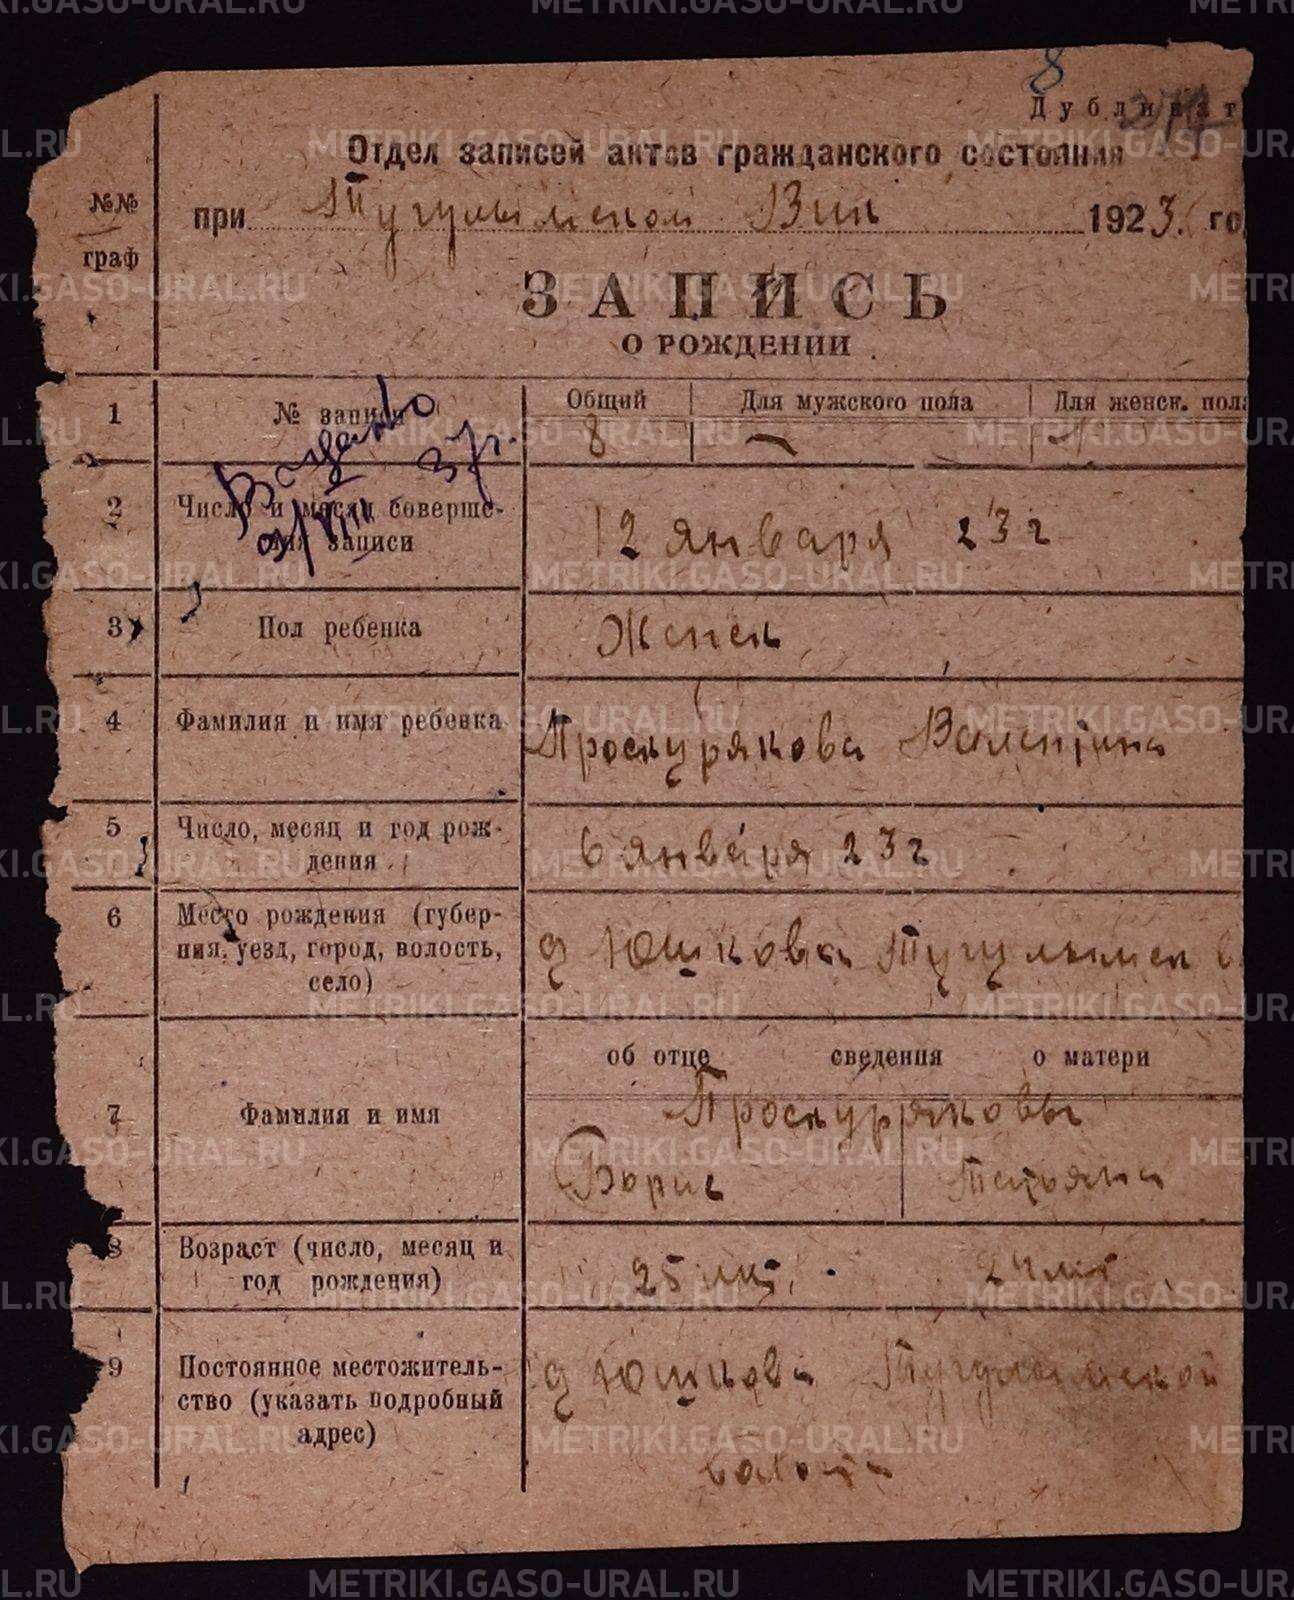 8
Дубликат
Отдел записей актов гражданского состояния
при Тугулымской Вик 1923 го
№№ граф
ЗАПИСЬ
О РОЖДЕНИИ
1 № записи Общий Для мужского пола Для женск. пола
8 — 1
Выдано
9/VIII 37г.
2 Число и месяц соверше-
ния записи
12 января 23 г
3 Пол ребенка Женск
4 Фамилия и имя ребенка Проскурякова Валентина
5 Число, месяц и год рож-
дения
6 января 23 г
6 Место рождения (губер-
ния, уезд, город, волость,
село)
д Юшкова Тугулымск в
об отце сведения о матери
7 Фамилия и имя Проскуряковы
Борис Татьяна
8 Возраст (число, месяц и
год рождения)
25 лет. 24 лет
9 Постоянное местожитель-
ство (указать подробный
адрес)
д Юшкова Тугулымской
волости
METRIKI.GASO-URAL.RU